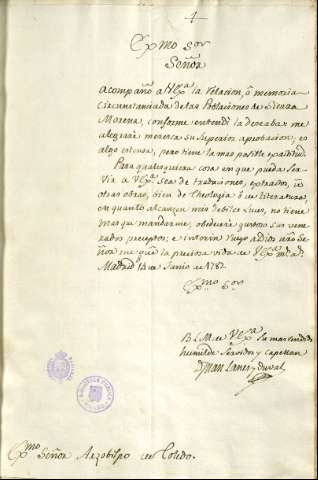 4
Exmo Sor
Señor
Acompaño á VExa la relacion, ó memoria
circunstanciada de las Poblaciones de Sierra
Morena, conforme entendí la deseaba: me
alegraré merezca su Superior aprobacion; es
algo extensa, pero tiene la mas posible exactitud.
Para qualesquiera cosa en que pueda ser-
vir a VExa sea de traduciones, extractos, ú
otras obras, bien de Theologia ó de literatura,
en quanto alcanzen mis debiles luces, no tiene
mas que mandarme, obedeceré gustoso sus vene-
rados preceptos; e interin ruego a Dios nro Se-
ñor me gue la preciosa vida de VExa ms as
Madrid 14 de Junio de 1787.
Exmo Sor
B L M de VExa su mas rendido
humilde Servidor y Capellan
Juan Lanes y Duval
Exmo Señor Arzobispo de Toledo.